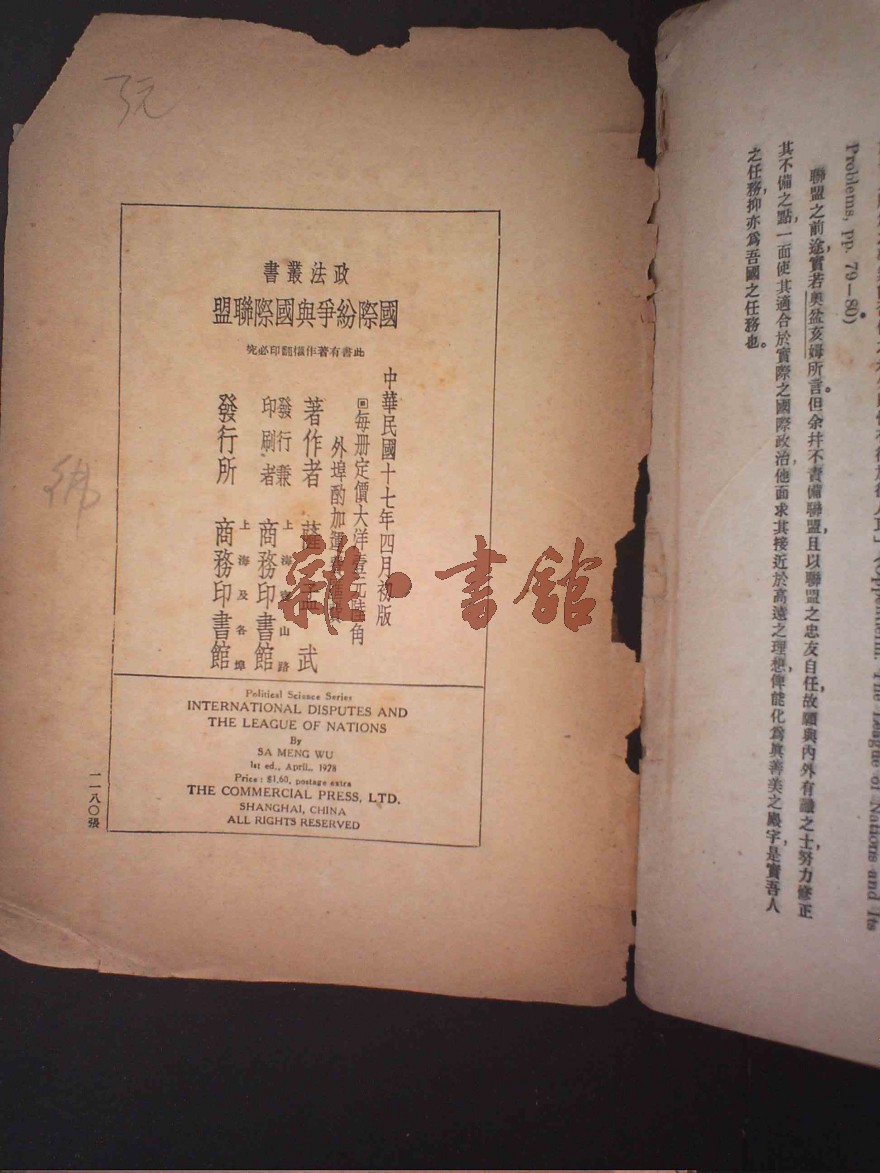 Problems, pp. 79—80)
聯盟之前途,實若奧盆亥姆所言。但余幷不責備聯盟,且以聯盟之忠友自任,故願與內外有識之士,努力修正
其不備之點,一面使其適合於實際之國際政治,他面求其接近於高遠之理想,俾能化爲眞善美之殿宇,是實吾人
之任務,抑亦爲吾國之任務也。
了元
政法叢書
國際紛爭與國際聯盟
此書有著作權翻印必究
中華民國十七年四月初版
每册定價大洋壹元陸角
外埠酌加運費匯費
著作者 薩孟武
發行兼印刷者 上海寶山路 商務印書館
發行所 上海及各埠 商務印書館
Political Science Series
INTERNATIONAL DISPUTES AND
THE LEAGUE OF NATIONS
By
SA MENG WU
1st ed., April., 1978
Price: $1,60, postage extra
THE COMMERCIAL PRESS, LTD.
SHANGHAI, CHINA
ALL RIGHTS RESERVED
一一八〇張
雜·書館